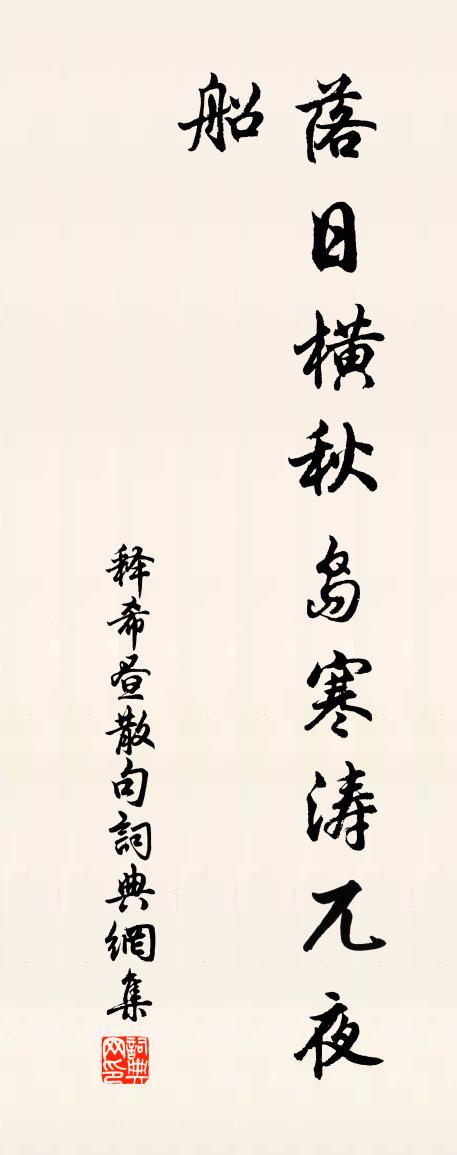 落日横秋岛寒涛兀夜
船
释希昼散句詞典網集
詞典网印